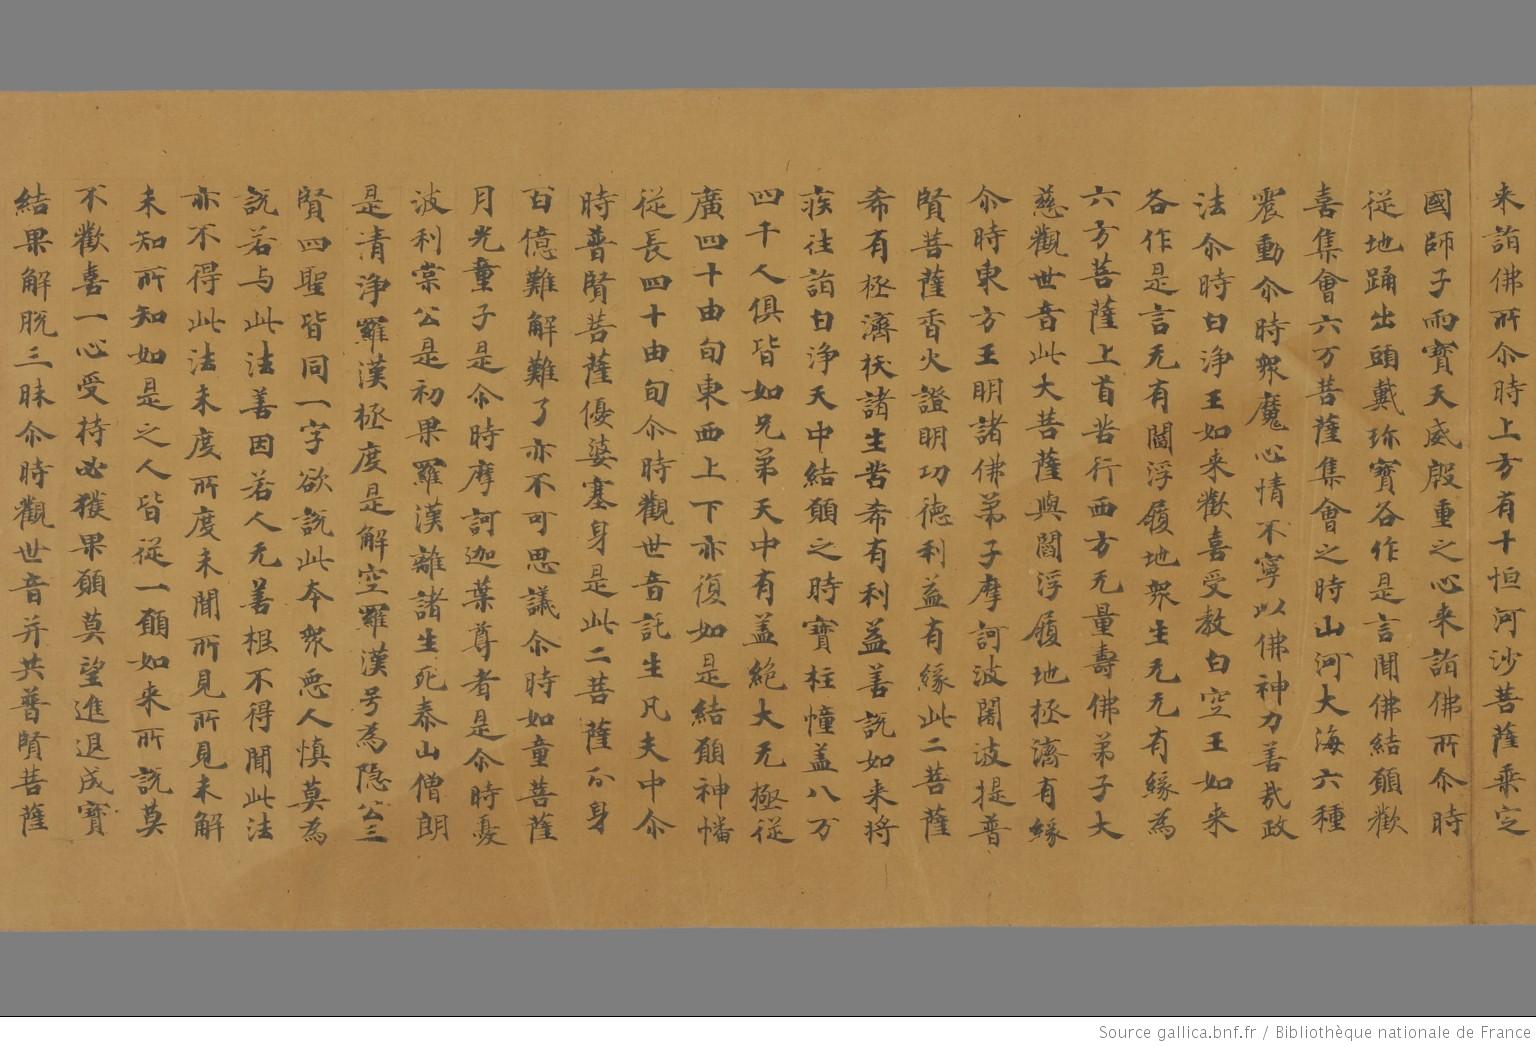 来詣佛所尒時上方有十恒河沙菩薩乘定
國師子雨寶天盛殷重之心来詣佛所尒時
従地踊出頭戴珎寶各作是言聞佛結願歡
喜集會六万菩薩集會之時山河大海六種
震動尒時衆魔心情不寧以佛神力善哉政
法尒時白淨王如来歡喜受教白空王如来
各作是言无有閻浮履地衆生无无有緣為
六方菩薩上首苦行西方无量壽佛弟子大
慈觀世音此大菩薩與閻浮履地拯濟有緣
尒時東方王明諸佛弟子摩訶波闍波提普
賢菩薩香火證明功徳利益有緣此二菩薩
希有拯濟扶諸生苦希有利益善説如来将
疾往詣白淨天中結願之時寶柱憧盖八万
四千人俱皆如兄弟天中有盖絶大无極従
廣四十由旬東西上下亦復如是結願神幡
従長四十由旬尒時觀世音託生凡夫中尒
時普賢菩薩優婆塞身是此二菩薩尒身
百億難解難了亦不可思議尒時如童菩薩
月光童子是尒時摩訶迦葉尊者是尒時憂
波利棠公是初果羅漢離諸生死泰山僧朗
是清淨羅漢極度是解空羅漢号為隐公三
賢四聖皆同一字欲説此本衆惡人慎莫為
説若与此法善因若人无善根不得聞此法
亦不得此法未度所度未聞所見所見未解
未知所知如是之人皆従一願如来所説莫
不歡喜一心受持必獲果願莫望進退成寶
結果解脱三昧尒時觀世音并共普賢菩薩
Source gallica.bnf.fr / Bibliothèque nationale de France